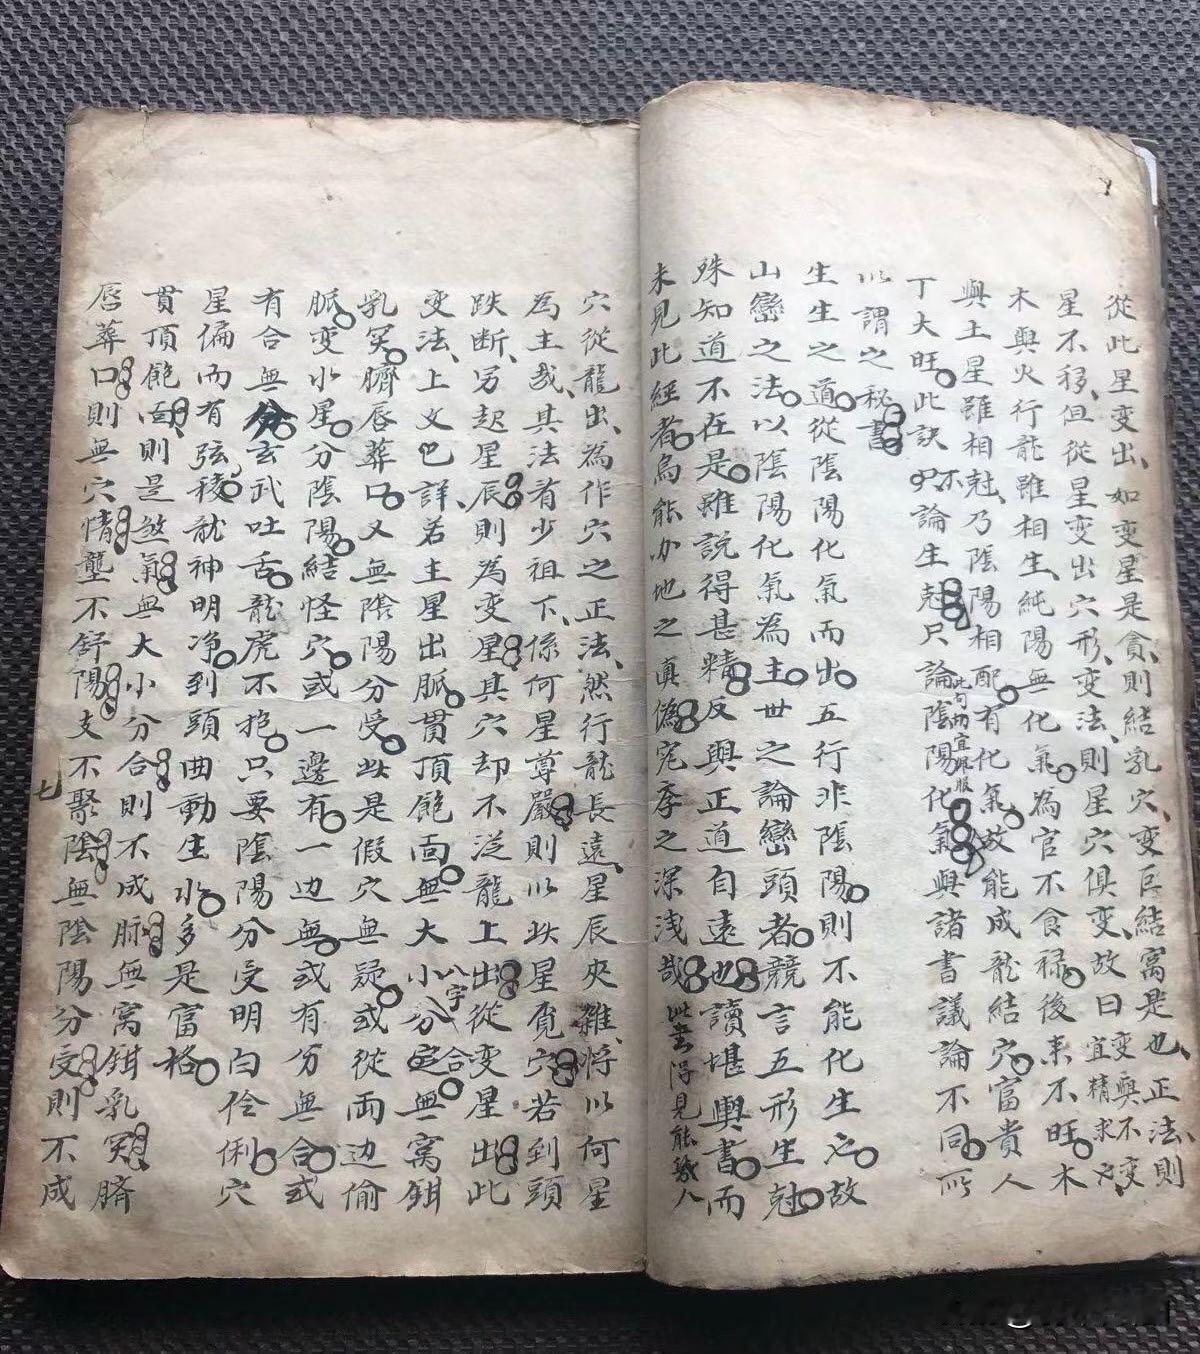 從此星变出、如变星是貪、則結乳穴、变巨結窩是也、正法、則
星不移、但從星变出穴形、变法、則星穴俱变、故曰变與不变宜精求之、
木與火行龍雖相生、純陽無化氣。為官不食禄。後来不旺。木
與土星雖相尅、乃陰陽相配。有化氣。故能成龍結穴。富貴人
丁大旺。此訣不論生尅只論陰陽化氣與諸書議論不同所
此句内宜佩服
以謂之秘書
生生之道。從陰陽化氣而出。五行非陰陽。則不能化生之。故
山巒之法。以陰陽化氣為主。世之論巒頭者。競言五形生尅。
殊知道不在是。雖說得甚精反與正道自遠也讀堪輿書而
未見此經者。烏能办地之真偽究季之深浅哉
此書得見能救人
穴從龍出、為作穴之正法、然行龍長遠、星辰夾雜、将以何星
為主哉、其法看少祖下、係何星尊嚴則以此星覓穴若到頭
跌断、另起星辰則為变星其穴却不泛龍上出從变星出此
变法、上文已詳、若主星出脈。貫頂飽面。無大小八字分合。無窩鉗
乳突。臍唇葬口。又無陰陽分受。此是假穴無疑。或從両边偷
脈。变水星。分陰陽。結怪穴。或一邊有。一边無。或有分無合。或
有合無分。玄武吐舌。龍虎不抱。只要陰陽分受明白伶俐。穴
星偏而有弦稜。龍神明净。到頭曲動生水。多是富格。
貫頂飽面則是煞氣無大小分合則不成脉無窩鉗乳突臍
唇葬口則無穴情壟不舒陽支不聚陰無陰陽分受則不成
七